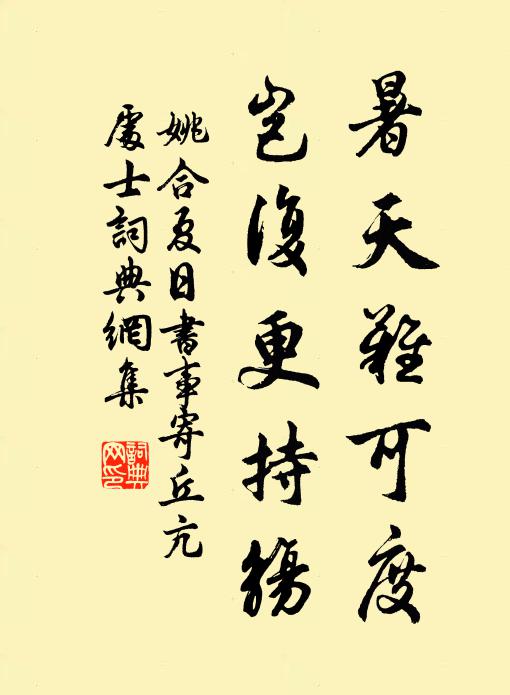 暑天難可度
豈復更持觴
姚合夏日書事寄丘亢
處士詞典網集
詞典
网印